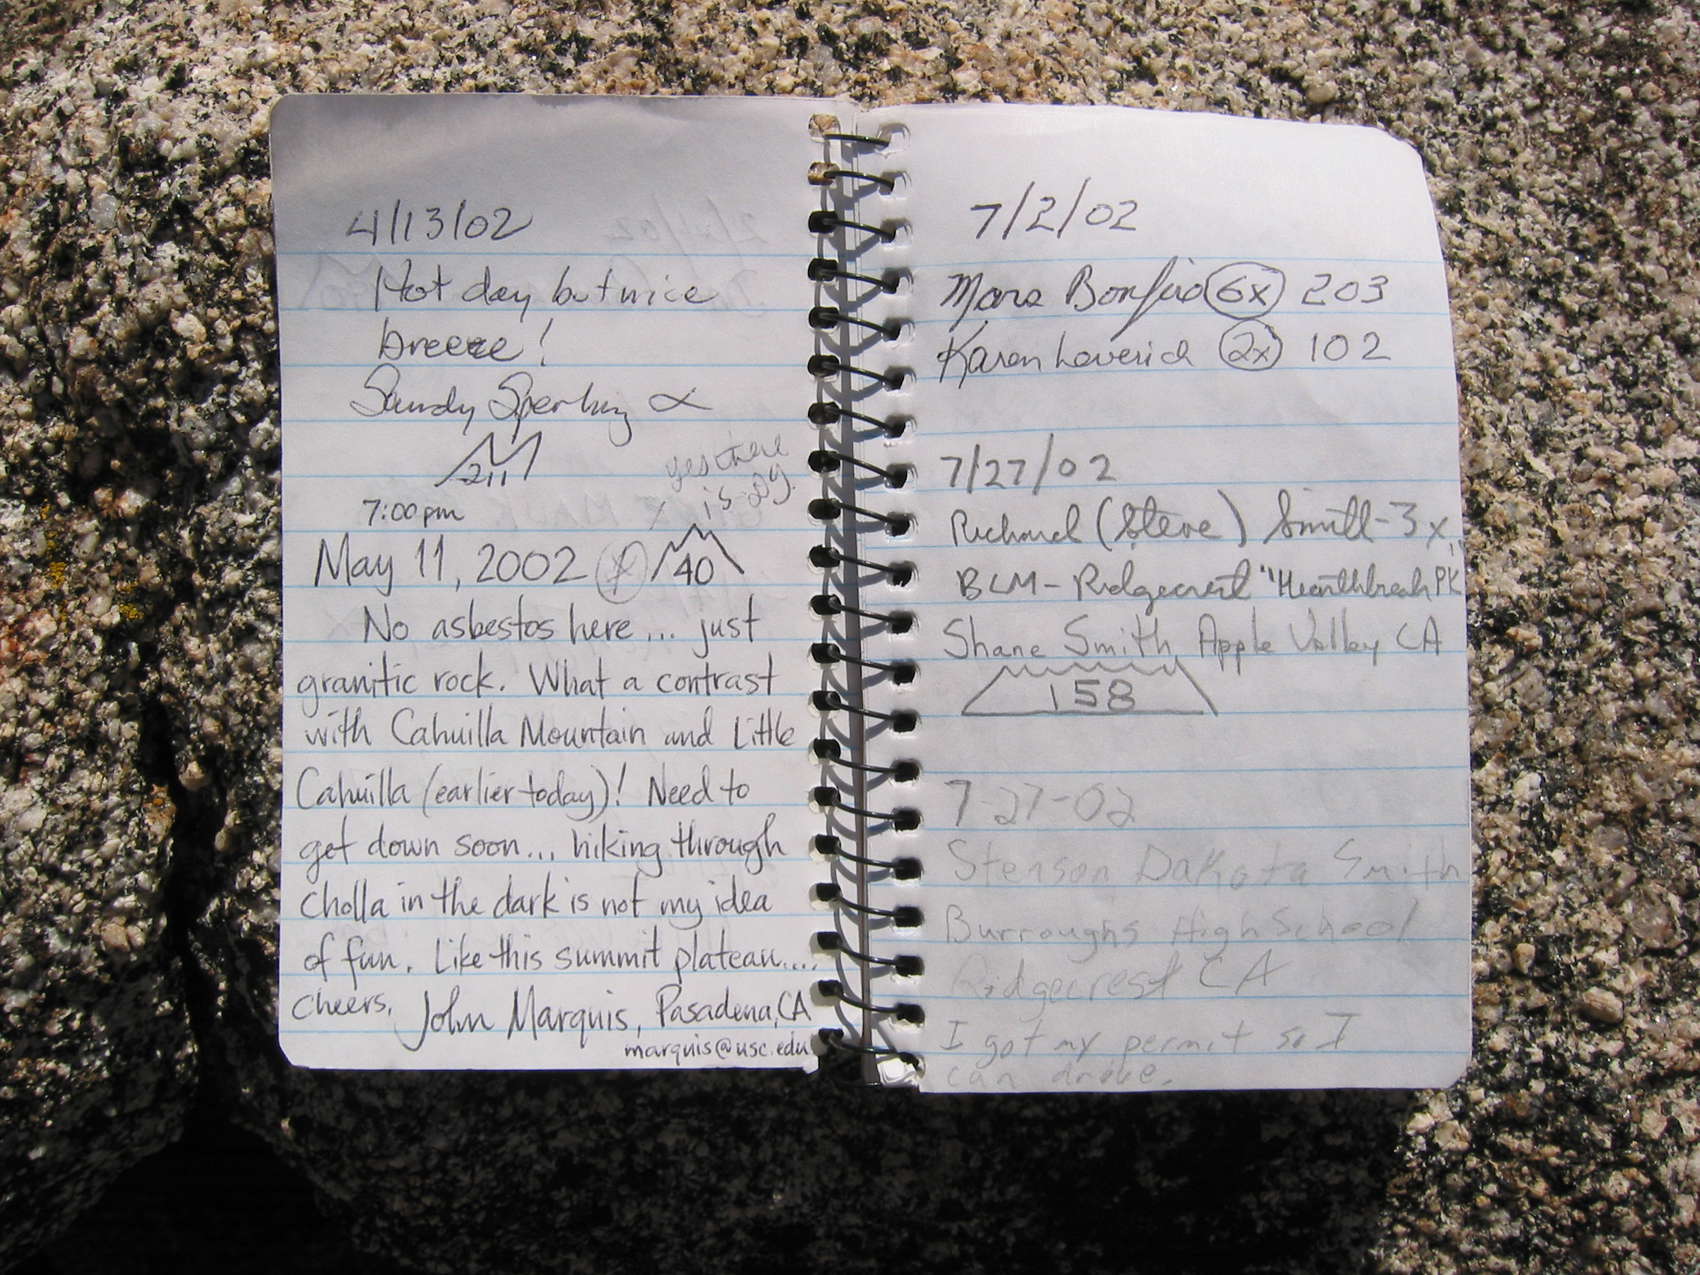 4/13/02
Hot day but nice
breeze!
Sandy Sperling
211
yes there
is
7:00pm
May 11, 2002 40
No asbestos here... just
granitic rock. What a contrast
with Cahuilla Mountain and Little
Cahuilla (earlier today)! Need to
get down soon... hiking through
cholla in the dark is not my idea
of fun. Like this summit plateau....
Cheers, John Marquis, Pasadena, CA
marquis@usc.edu
7/2/02
Mars Bonfire 6x 203
Karen Leverich 2x 102
7/27/02
Richard (Steve) Smith-3x
BLM-Ridgecrest "Heartbreak PK"
Shane Smith Apple Valley CA
158
7-27-02
Stenson Dakota Smith
Burroughs High School
Ridgecrest CA
I got my permit so I
can drive.